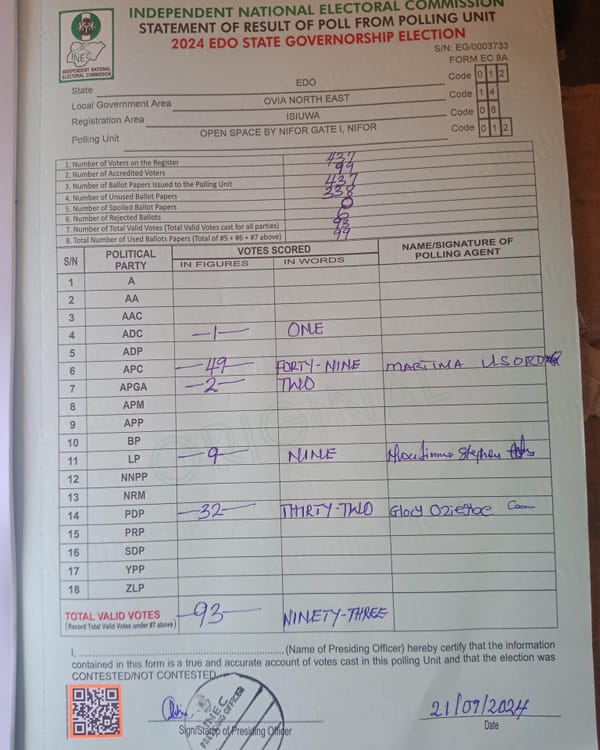 INDEPENDENT NATIONAL ELECTORAL COMMISSION
STATEMENT OF RESULT OF POLL FROM POLLING UNIT
2024 EDO STATE GOVERNORSHIP ELECTION
INEC
INDEPENDENT NATIONAL ELECTORAL COMMISSION
S/N: EG/0003733
FORM EC 8A
State EDO Code 0 1 2
Local Government Area OVIA NORTH EAST Code 1 4
Registration Area ISIUWA Code 0 8
Polling Unit OPEN SPACE BY NIFOR GATE I, NIFOR Code 0 1 2
1. Number of Voters on the Register 437
2. Number of Accredited Voters 99
3. Number of Ballot Papers Issued to the Polling Unit 437
4. Number of Unused Ballot Papers 338
5. Number of Spoiled Ballot Papers 0
6. Number of Rejected Ballots
7. Number of Total Valid Votes (Total Valid Votes cast for all parties) 93
8. Total Number of Used Ballots Papers (Total of #5 + #6 + #7 above) 99
S/N POLITICAL PARTY VOTES SCORED NAME/SIGNATURE OF POLLING AGENT
IN FIGURES IN WORDS
1 A
2 AA
3 AAC
4 ADC -1- ONE
5 ADP
6 APC -49- FORTY-NINE MARTINA
7 APGA -2- TWO
8 APM
9 APP
10 BP
11 LP -9- NINE Stephen
12 NNPP
13 NRM
14 PDP -32- THIRTY-TWO Glory
15 PRP
16 SDP
17 YPP
18 ZLP
TOTAL VALID VOTES -93- NINETY-THREE
(Record Total Valid Votes under #7 above)
ORIGINAL
I, ........................................................(Name of Presiding Officer) hereby certify that the information
contained in this form is a true and accurate account of votes cast in this polling Unit and that the election was
CONTESTED/NOT CONTESTED.
INEC
PRESIDING OFFICER
21/09/2024
Sign/Stamp of Presiding Officer Date